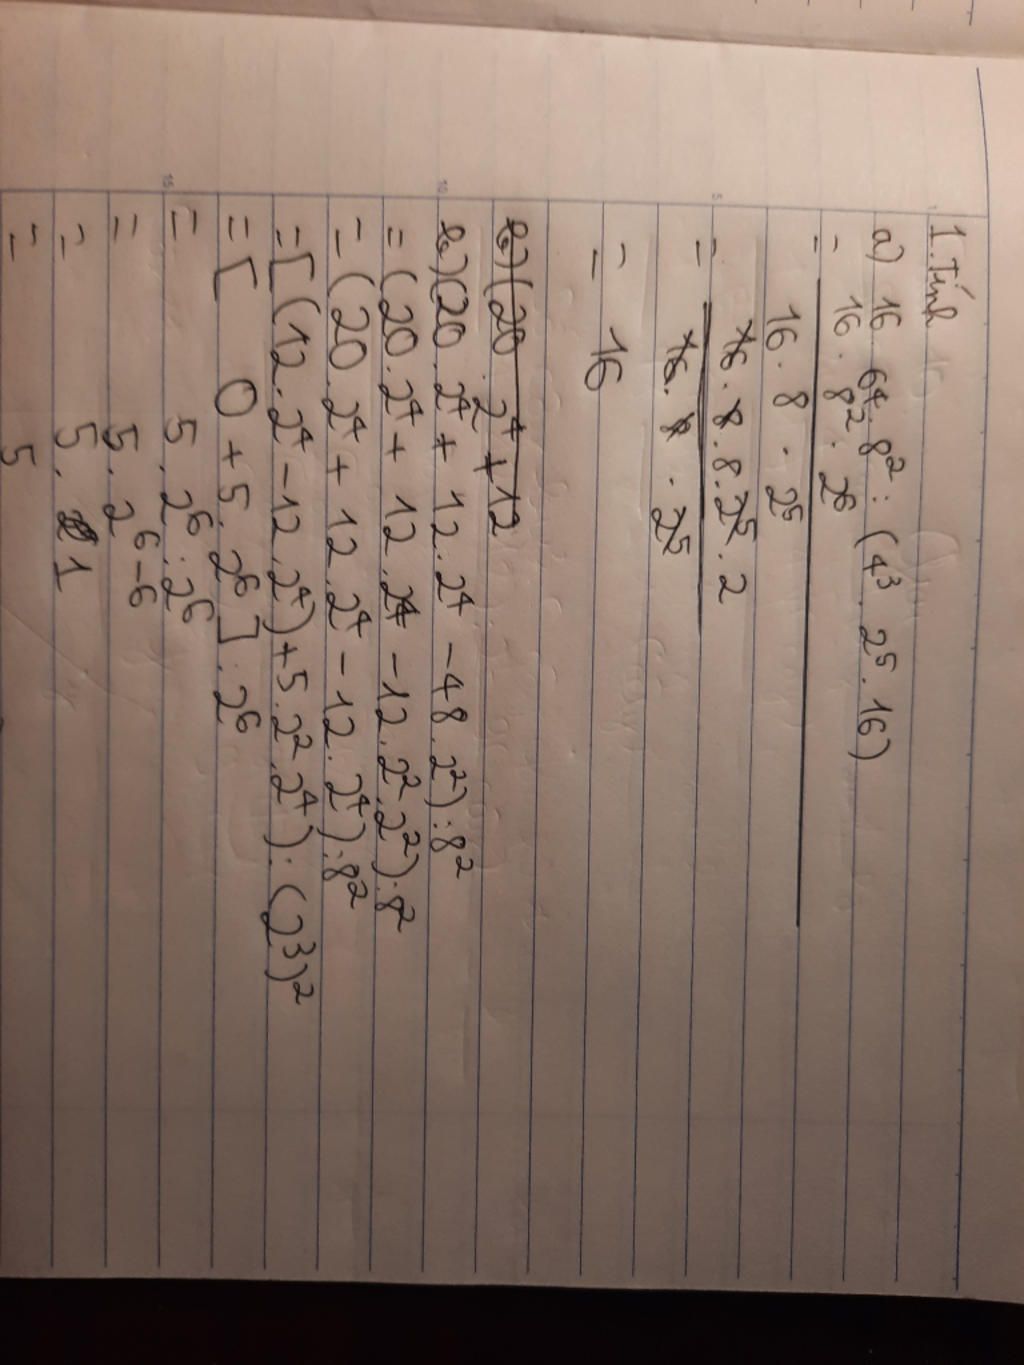 1. Tính
a) 16 . 64 . 8² : (4³ . 2⁵ . 16)
= 16 . 8² . 2⁶
16 . 8 . 2⁵
= 16 . 8 . 8 . 2⁵ . 2
16 . 8 . 2⁵
= 16
b) (20 . 2⁴ + 12
b) (20 . 2⁴ + 12 . 2⁴ - 48 . 2²) : 8²
= (20 . 2⁴ + 12 . 2⁴ - 12 . 2² . 2²) : 8²
= (20 . 2⁴ + 12 . 2⁴ - 12 . 2⁴) : 8²
= [(12 . 2⁴ - 12 . 2⁴) + 5 . 2² . 2⁴) : (2³)²
= [ 0 + 5 . 2⁶ ] : 2⁶
= 5 . 2⁶ : 2⁶
= 5 . 2⁶⁻⁶
= 5 . 1
= 5